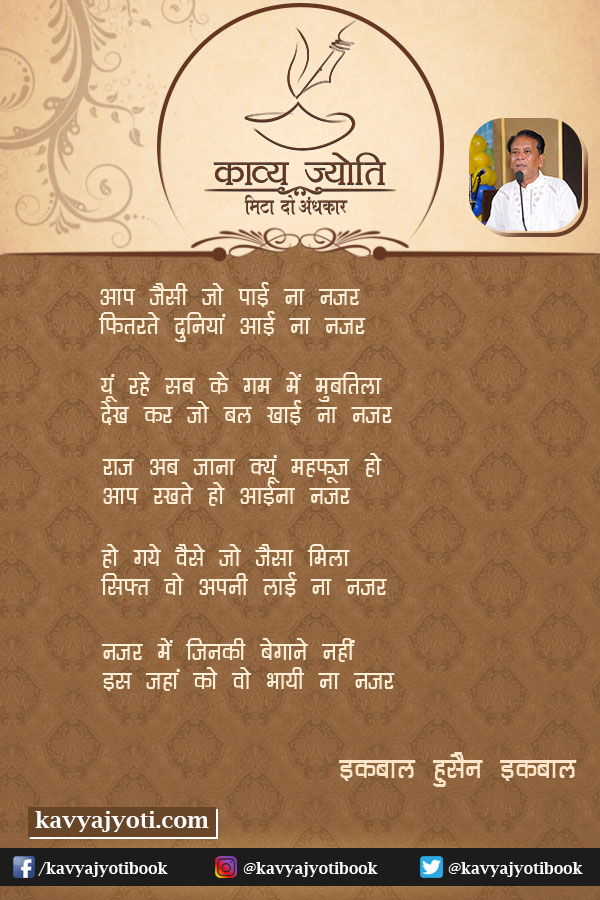 काव्य ज्योति
मिटा दो अंधकार
आप जैसी जो पाई ना नजर
फितरते दुनियां आई ना नजर
यूं रहे सब के गम में मुबतिला
देख कर जो बल खाई ना नजर
राज अब जाना क्यूं महफूज हो
आप रखते हो आईना नजर
हो गये वैसे जो जैसा मिला
सिफ्त वो अपनी लाई ना नजर
नजर में जिनकी बेगाने नहीं
इस जहां को वो भायी ना नजर
इकबाल हुसैन इकबाल
kavyajyoti.com
/kavyajyotibook @kavyajyotibook @kavyajyotibook